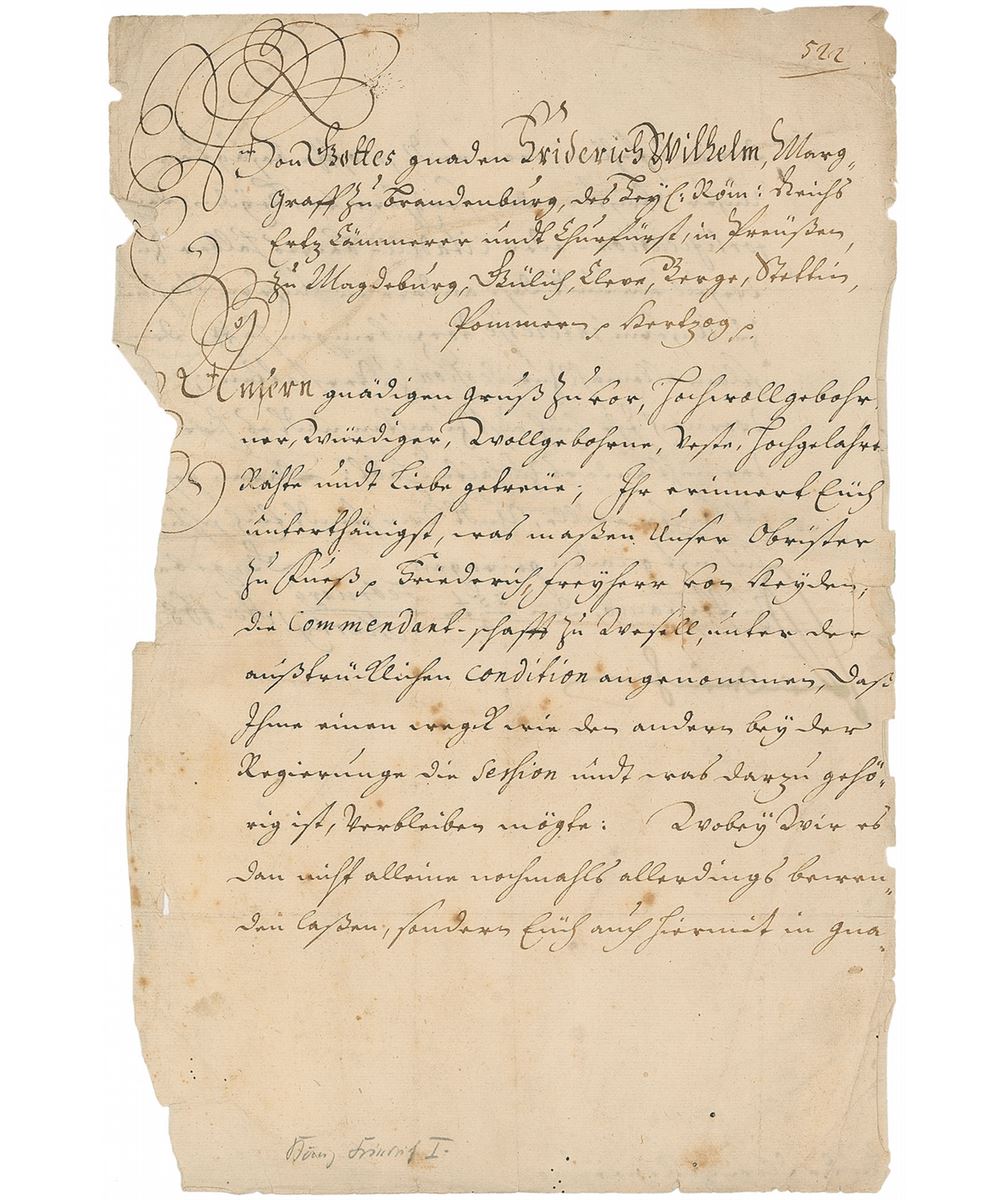 522
Von Gottes gnaden Friderich Wilhelm, Marg-
graff zu Brandenburg, des Heyl: Röm: Reichs
Ertz Cämmerer undt Churfürst, in Preußen,
zu Magdeburg, Gülich, Cleve, Berge, Stettin,
Pommern p Hertzog p.
Unsern gnädigen gruß zuvor, Hochwollgebohr-
ner, Würdiger, Wollgebohrne, Veste, Hochgelahrte
Rähte undt Liebe getreüe; Ihr erinnert Eüch
unterthänigst, was maßen Unser Obrister
zu Fueß p Friederich, freyherr von Heyden,
die Commendant-schafft zu Wesell, unter der
außtrücklichen condition angenommen, Daß
Ihme einen wegck wie den andern bey der
Regierunge die Session undt was darzu gehö-
rig ist, Verbleiben mögte: Wobey Wir es
dan nicht alleine nochmahls allerdings bewen-
den laßen, sondern Eüch auch hiermit in gna-
I.